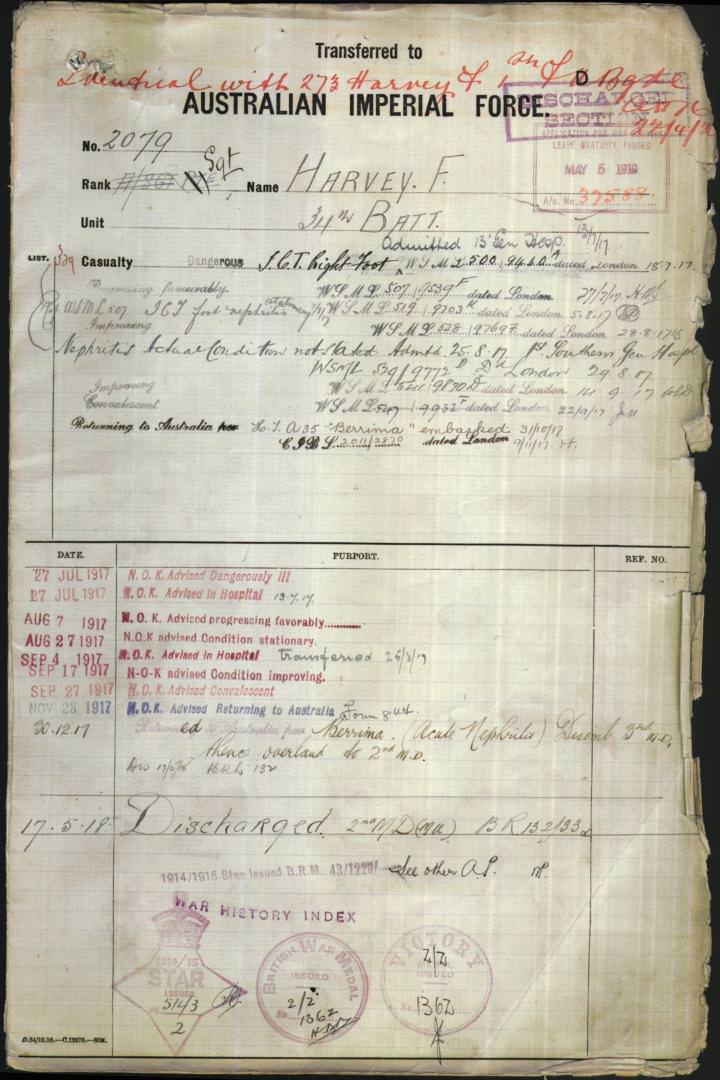 Transferred to
Identical with 273 Harvey F
AUSTRALIAN IMPERIAL FORCE.
DISCHARGED
SECTION
APPLICATION FOR WAR
LEAVE GRATUITY PASSED
MAY 5 1919
A/c. No. 37588
No. 2079
Rank A/SGT Pte Sgt Name HARVEY. F.
Unit 34th BATT.
Admitted 13 Gen Hosp. 13/7/17
LIST. Casualty Dangerous I.C.T. Right Foot W.S.M.L 500 9460 dated London 18.7.17.
Progressing favourably W.S.M.L 507 9539 dated London 27/7/17
W.S.M.L 507 I C T foot nephritis stationary W.S.M.L 519 9703 dated London 5.8.17
Improving W.S.M.L 528 9769 dated London 28.8.17
Nephritis Actual Condition not stated Admtd. 25.8.17. 1st Southern Gen Hospl
WSML 529/9772 Dd London 29.8.17.
Improving W.S.M.L 9830 dated London 14 9 17
Convalescent W.S.M.L 9932 dated London 22/9/17
Returning to Australia per H.T. A35 "Berrima" embarked 31/10/17
2011/2870 dated London 9/11/17
DATE. PURPORT. REF. NO.
27 JUL 1917 N.O.K. Advised Dangerously Ill
27 JUL 1917 N.O.K. Advised in Hospital 13.7.17.
AUG 7 1917 N.O.K. Advised progressing favorably
AUG 27 1917 N.O.K advised Condition stationary.
SEP 4 1917 N.O.K. Advised in Hospital transferred 25/8/17
SEP 17 1917 N-O-K advised Condition improving.
SEP 27 1917 N.O.K Advised Convalescent
NOV 28 1917 N.O.K. Advised Returning to Australia Form
30.12.17 Returned to Australia per Berrima. (Acute Nephritis) Disemb 3rd M.D.
thence overland to 2nd M.D.
17.5.18. Discharged. 2nd M D (MU) BR 132/33
1914/1915 Star issued B.R.M. 43/1229 See other A.P.
WAR HISTORY INDEX
1914/15
STAR
ISSUED
5143
2
BRITISH WAR MEDAL
ISSUED
2/2
No. 1362
VICTORY
2/2
ISSUED
No. 1362